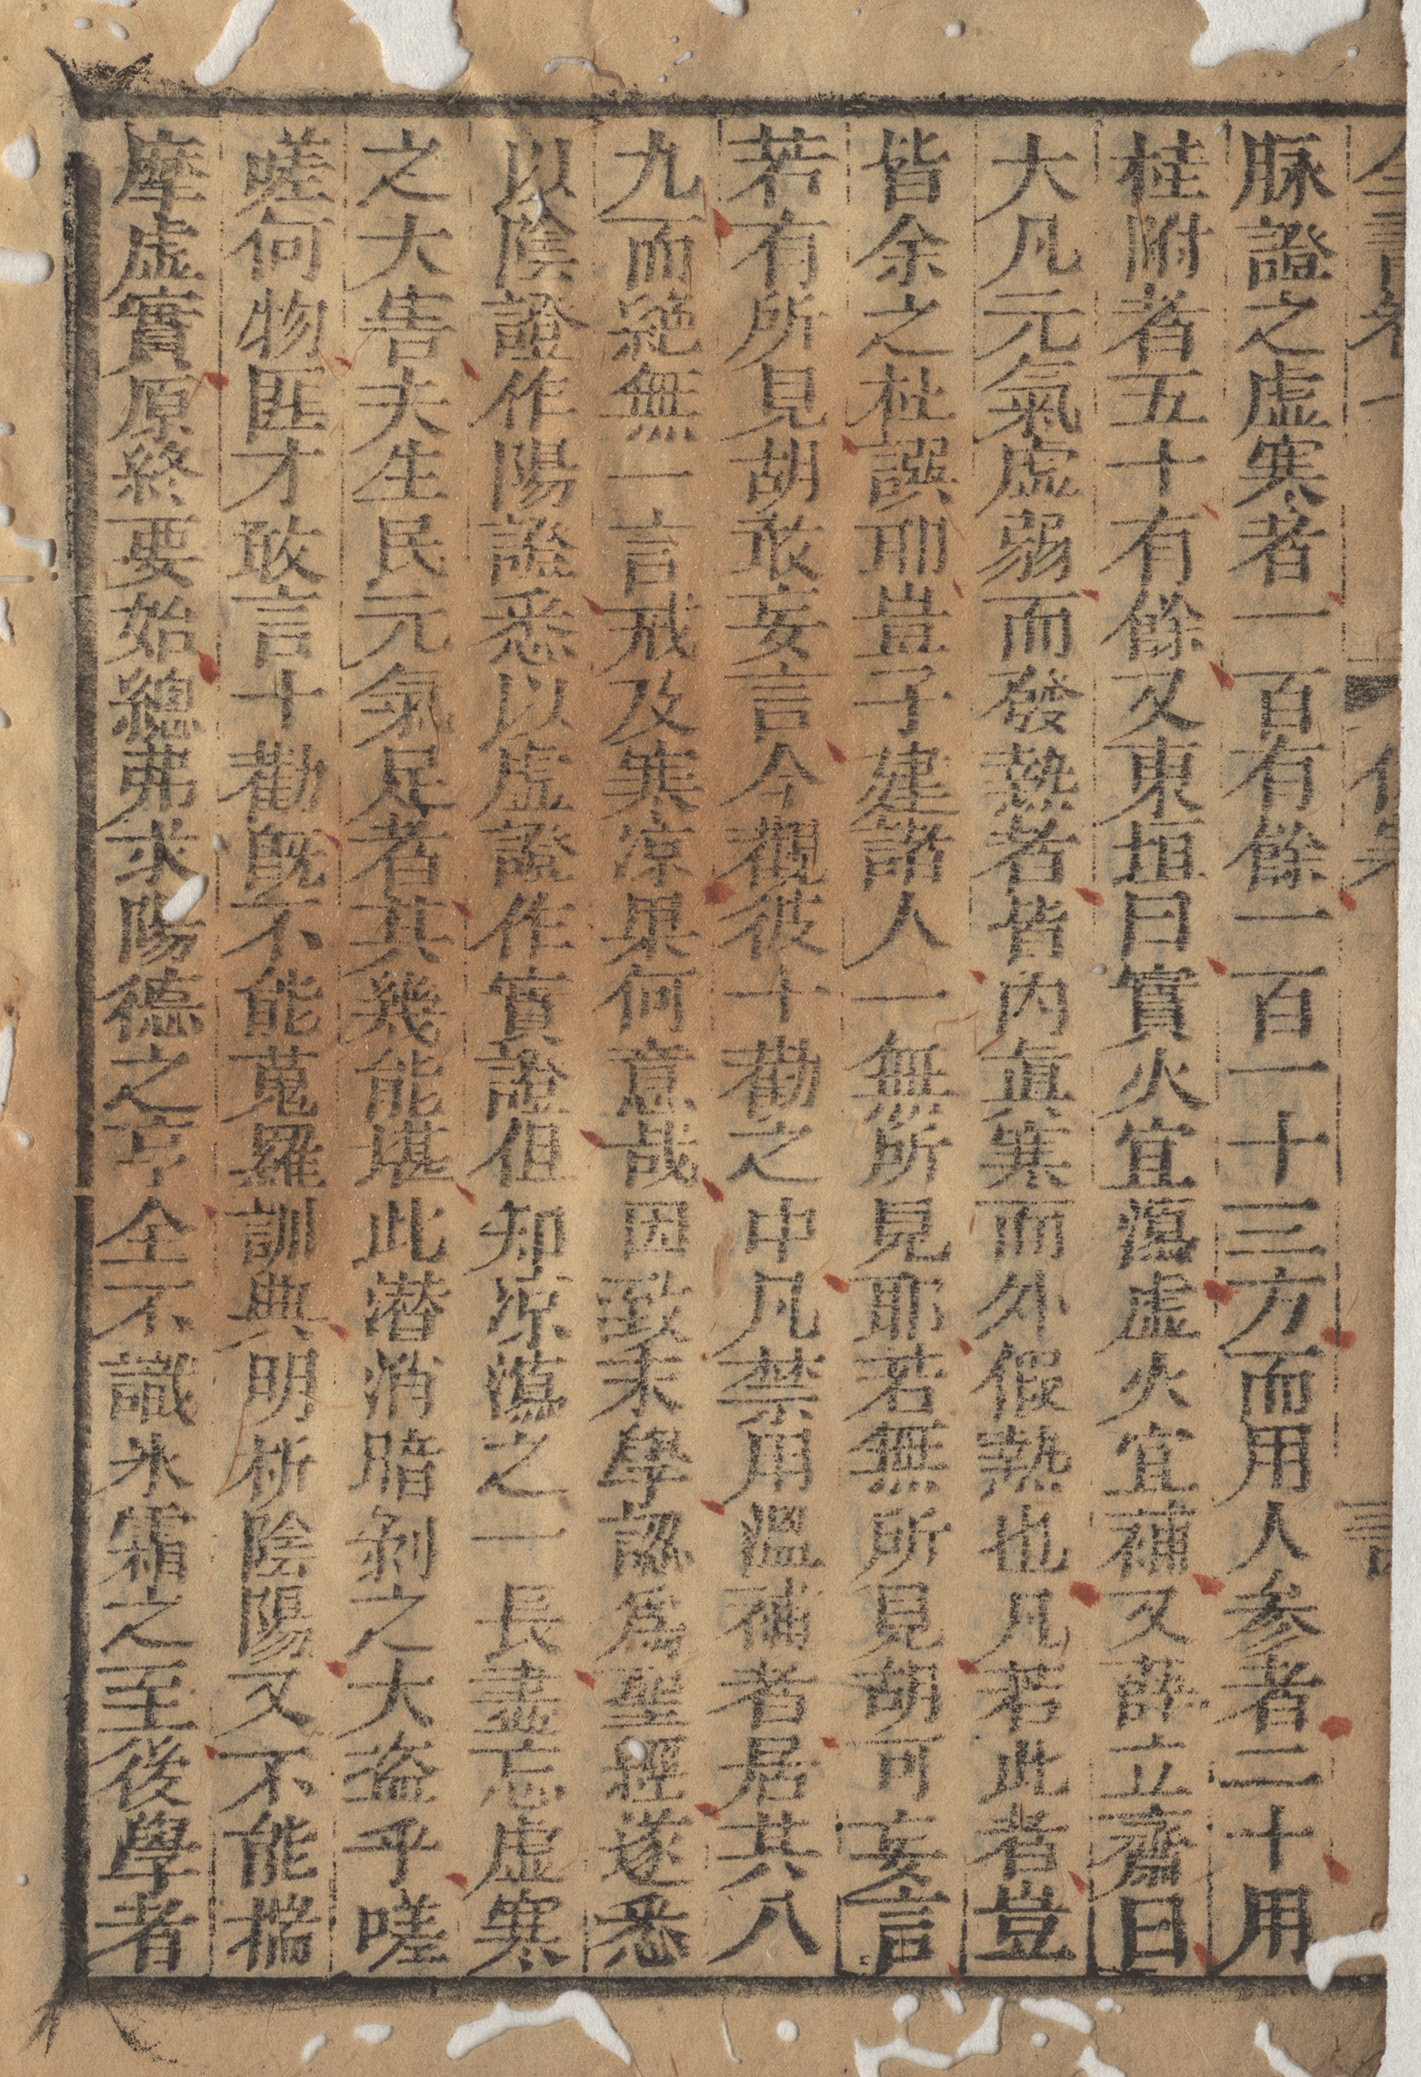 脉證之虛寒者一百有餘一百一十三方而用人参者二十用
桂附者五十有餘又東垣曰實火宜瀉虛火宜補又薛立齋曰
大凡元氣虛弱而發熱者皆内眞寒而外假熱也凡若此者豈
皆余之杜譔耶豈子建諸人一無所見耶若無所見胡可妄言
若有所見胡敢妄言今觀彼十勸之中凡禁用溫補者居其八
九而絕無一言戒及寒凉果何意哉因致末學認爲聖經遂悉
以陰證作陽證悉以虛證作實證但知凉瀉之一長盡忘虛寒
之大害夫生民元氣足者其幾能堪此潜消暗剝之大盗乎嗟
嗟何物匪才敢言十勸旣不能蒐羅訓典明析陰陽又不能揣
摩虛實原終要始總弗求陽德之亨全不識氷霜之至後學者